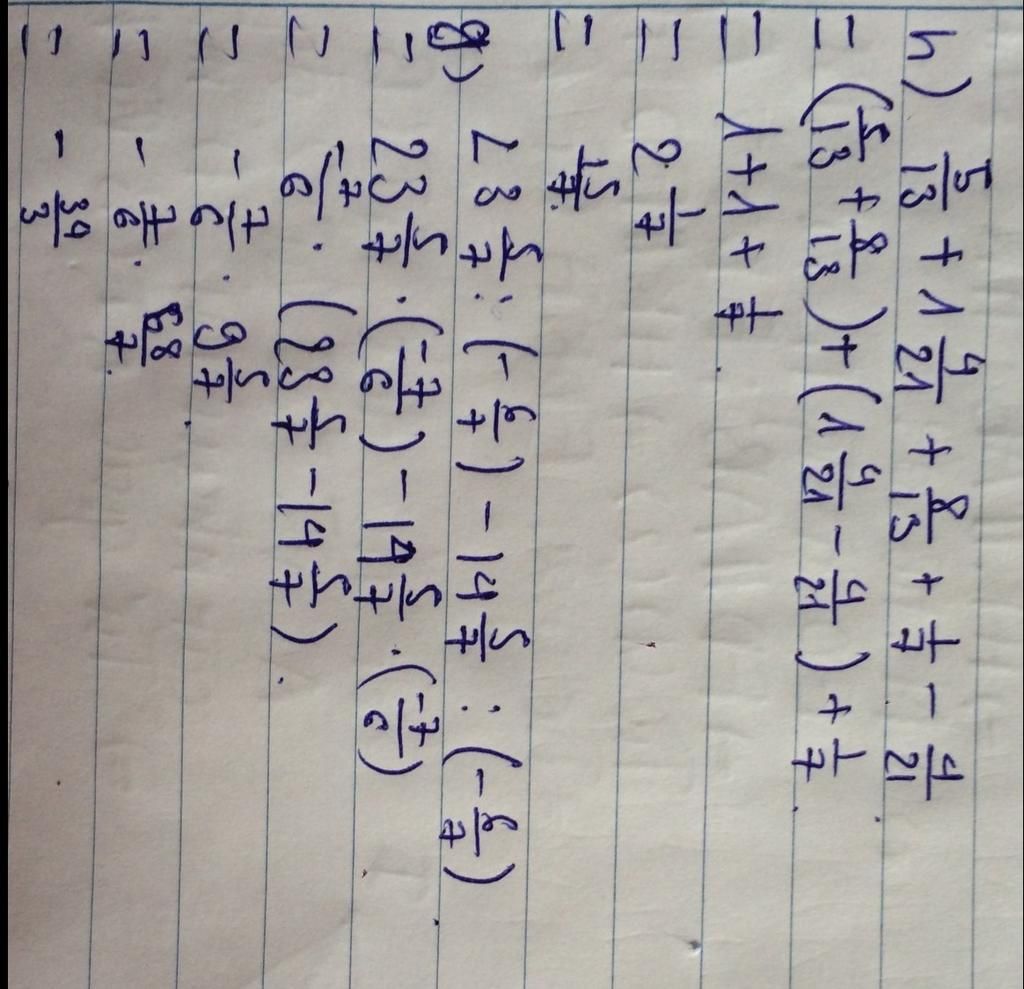 h) 5/13 + 1 4/21 + 8/13 + 1/7 - 4/21
= (5/13 + 8/13) + (1 4/21 - 4/21) + 1/7.
= 1 + 1 + 1/7.
= 2 1/7
= 15/7.
g) 23 5/7 : (- 6/7) - 14 5/7 : (- 6/7)
= 23 5/7 . (-7/6) - 14 5/7 . (-7/6)
= -7/6 . (23 5/7 - 14 5/7).
= - 7/6 . 9 5/7.
= - 7/6 . 68/7.
= - 34/3